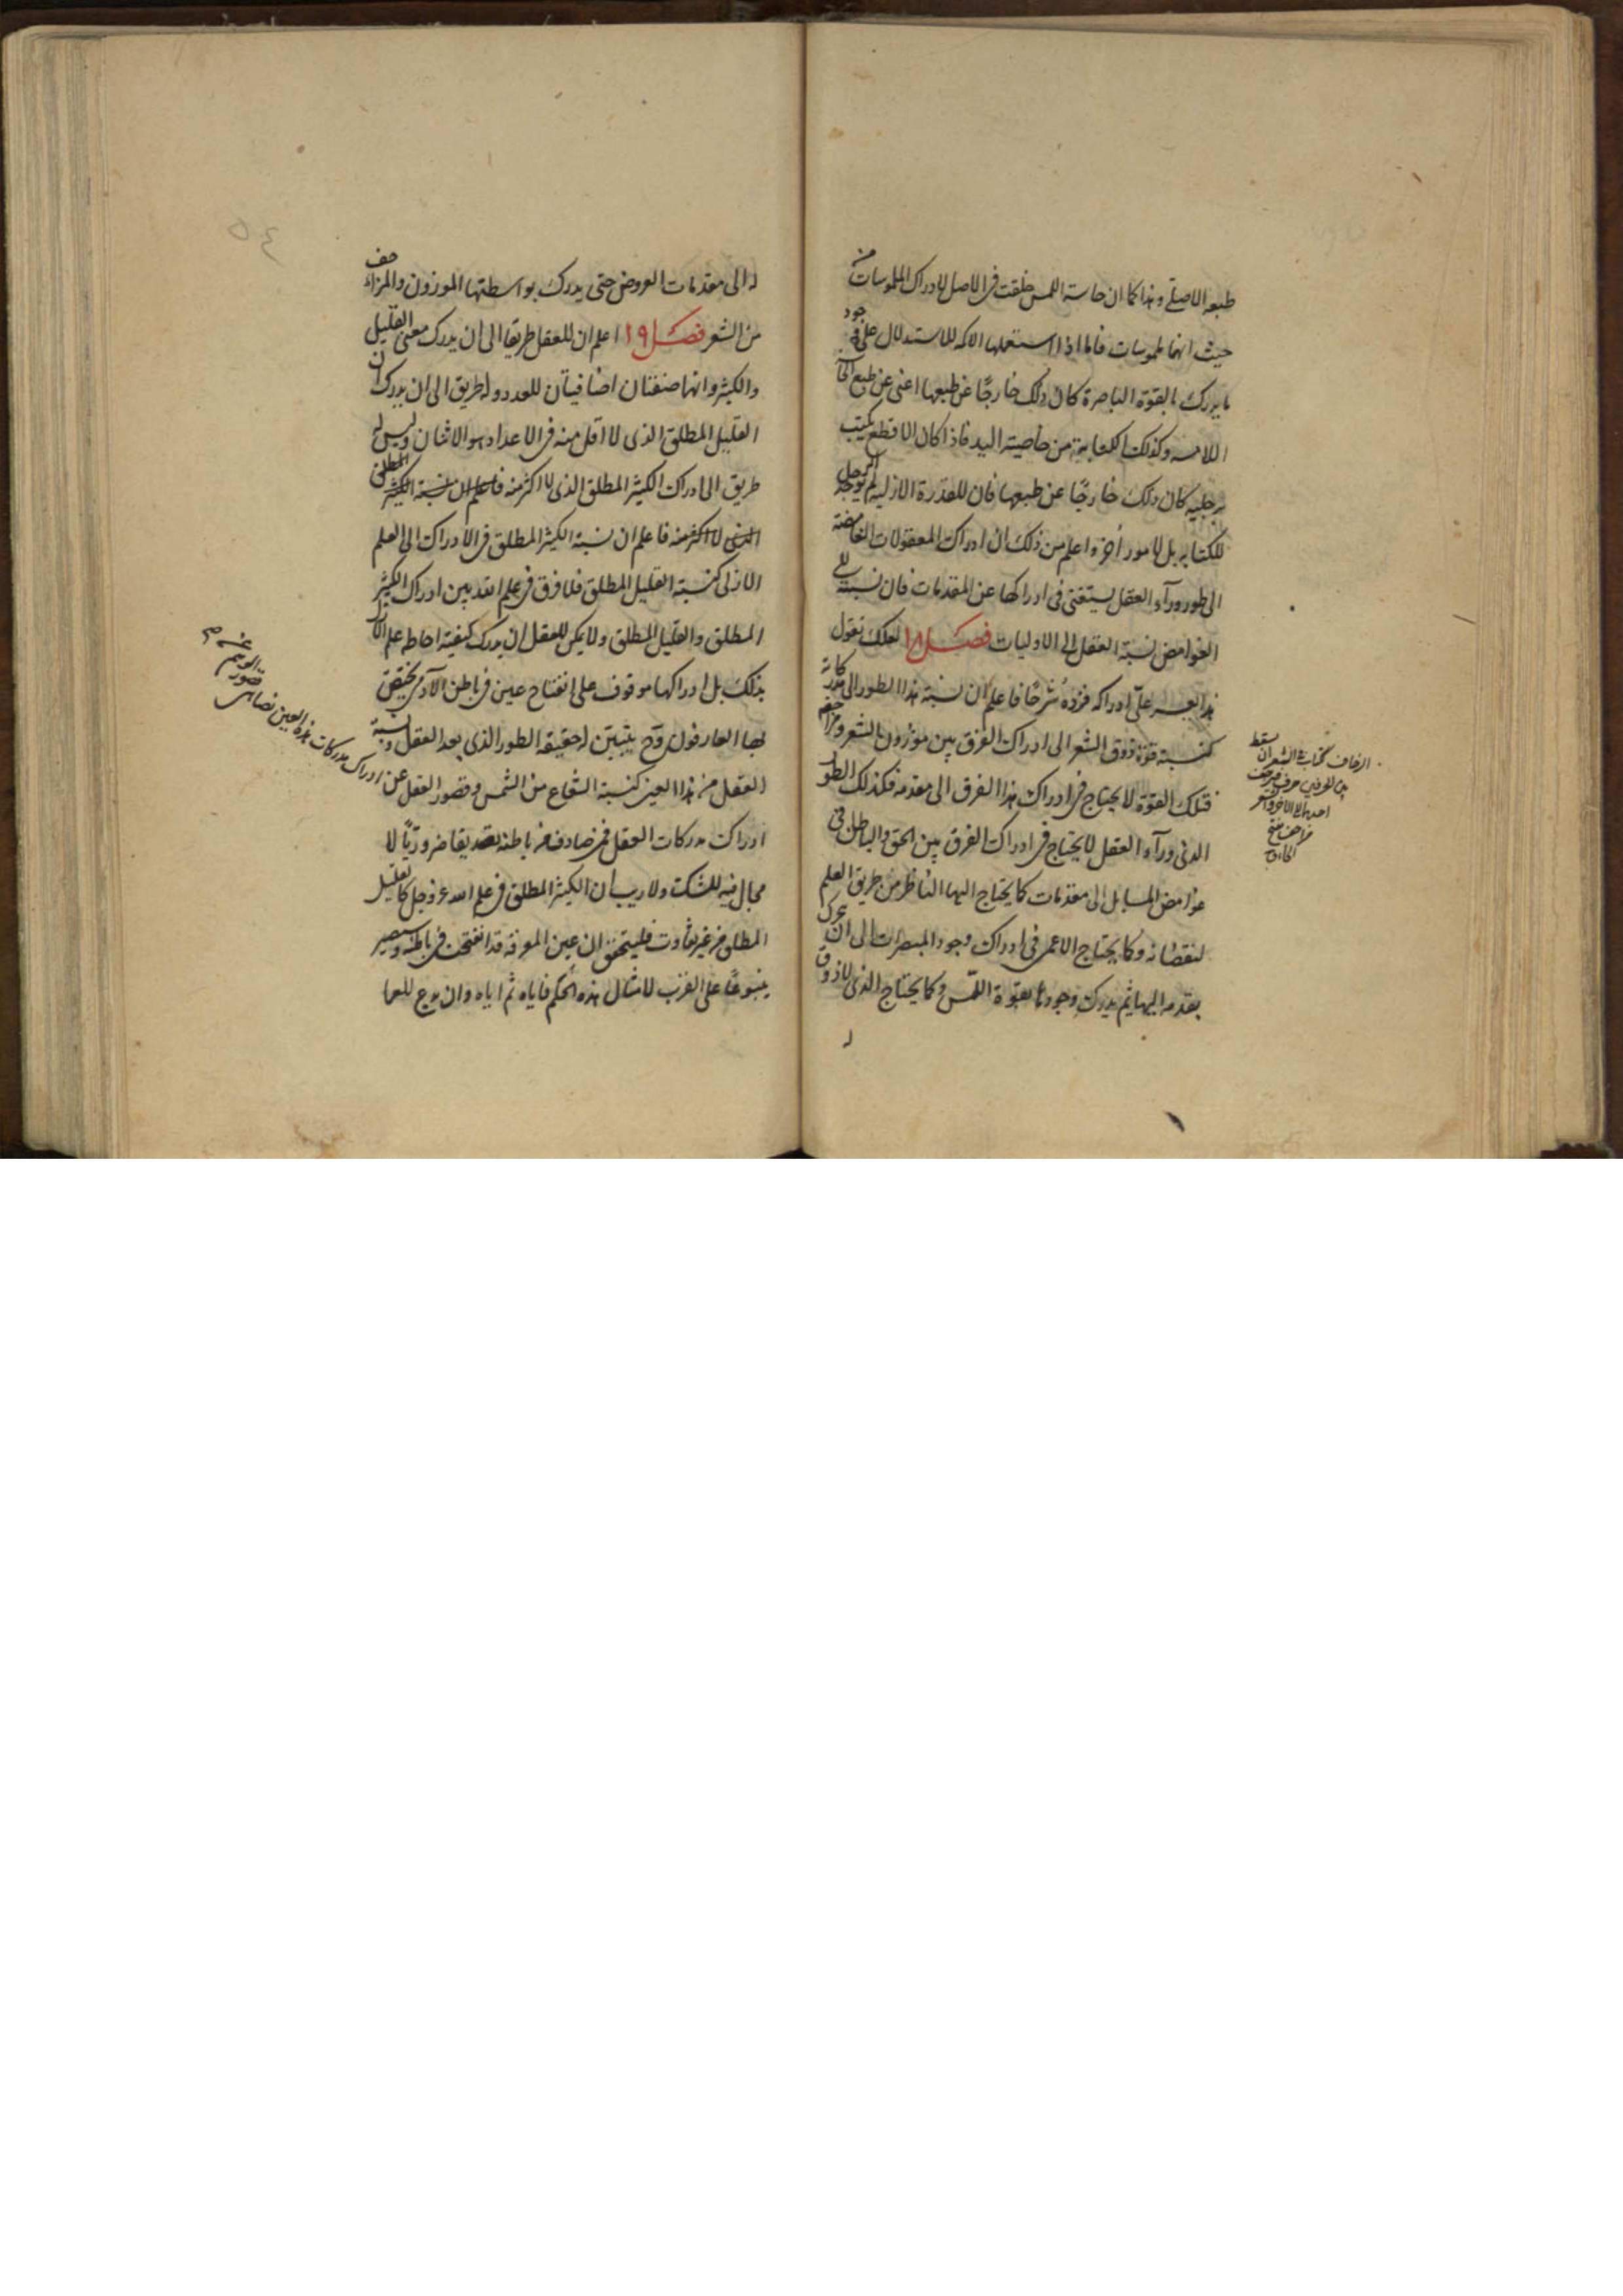 طبعه الاصلي وهذا كما ان حاسة اللمس خلقت في الاصل لادراك الملموسات من
حيث انها ملموسات فاما اذا استعملها الاكمه للاستدلال على وجود
ما يدرك بالقوة الباصرة كان ذلك خارجًا عن طبعها اعنى عن طبع
اللامسه وكذلك الكتابة من خاصية اليد فاذا كان الاقطع يكتب
برجليه كان ذلك خارجًا عن طبعها فان للقدرة الازلية لم توجد الرجل
للكتابه بل لامور أخر واعلم من ذلك ان ادراك المعقولات الغامضة
الى طور ورآء العقل يستغنى فى ادراكها عن المقدمات فان نسبته الى
الغوامض نسبة العقل الى الاوليات فصل ١٨ لعلك تقول
هذا يعسر علىّ ادراكه فزده شرحًا فاعلم ان نسبة هذا الطور الى مدركاته
كنسبة قوة ذوق الشعر الى ادراك الفرق بين موزون الشعر ومزاحفه
فتلك القوة لا يحتاج فى ادراك هذا الفرق الى مقدمة فكذلك الطور
الذى ورآء العقل لا يحتاج فى ادراك الفرق بين الحق والباطل فى
غوامض المسايل الى مقدمات كما يحتاج اليها الناظر من طريق العلم
لنقصانه وكما يحتاج الاعمى فى ادراك وجود المبصرات الى ان يحرك
يقدمه اليها ثم يدرك وجودها بقوة اللمس وكما يحتاج الذى لا ذوق
له
الزحاف فى الشعر ان يسقط
بين الحرفين حرف فيزحف
احدهما الى الاخر والشعر
مزاحف بفتح
الحاء
له الى مقدمات العروض حتى يدرك بواسطتها الموزون والمزاحف
من الشعر فصل ١٩ اعلم ان للعقل طريقا الى ان يدرك معنى القليل
والكثير وانهما صفتان اضافيتان للعدد وله طريق الى ان يدرك ان
القليل المطلق الذى لا اقل منه فى الاعداد هو الاثنان وليس له
طريق الى ادراك الكثير المطلق الذى لا اكثر منه فاعلم ان نسبة الكثير المطلق
الذى لا اكثر منه فاعلم ان نسبة الكثير المطلق فى الادراك الى العلم
الازلى كنسبة القليل المطلق فلا فرق فى علم الله بين ادراك الكثير
المطلق والقليل المطلق ولا يمكن للعقل ان يدرك كيفية احاطه علم الازل
بذلك بل ادراكها موقوف على انفتاح عين فى باطن الآدمى يتحقق
بها العارفون وح يتبين له حقيقة الطور الذى بعد العقل ونسبة
العقل من هذا العين كنسبة الشعاع من الشمس وقصور العقل عن ادراك مدركات هذه العين يضاهى
قصور الوهم عن
ادراك مدركات العقل فمن صادف من باطنه تصديقا ضروريًا لا
مجال فيه للشك ولا ريب ان الكثير المطلق فى علم الله عز وجل كالقليل
المطلق من غير تفاوت فليتحقق ان عين المعرفة قد انفتحت فى باطنه وسيصير
ينبوعًا على القرب لامثال هذه الحكم فاياه ثم اياه وان
٥٤